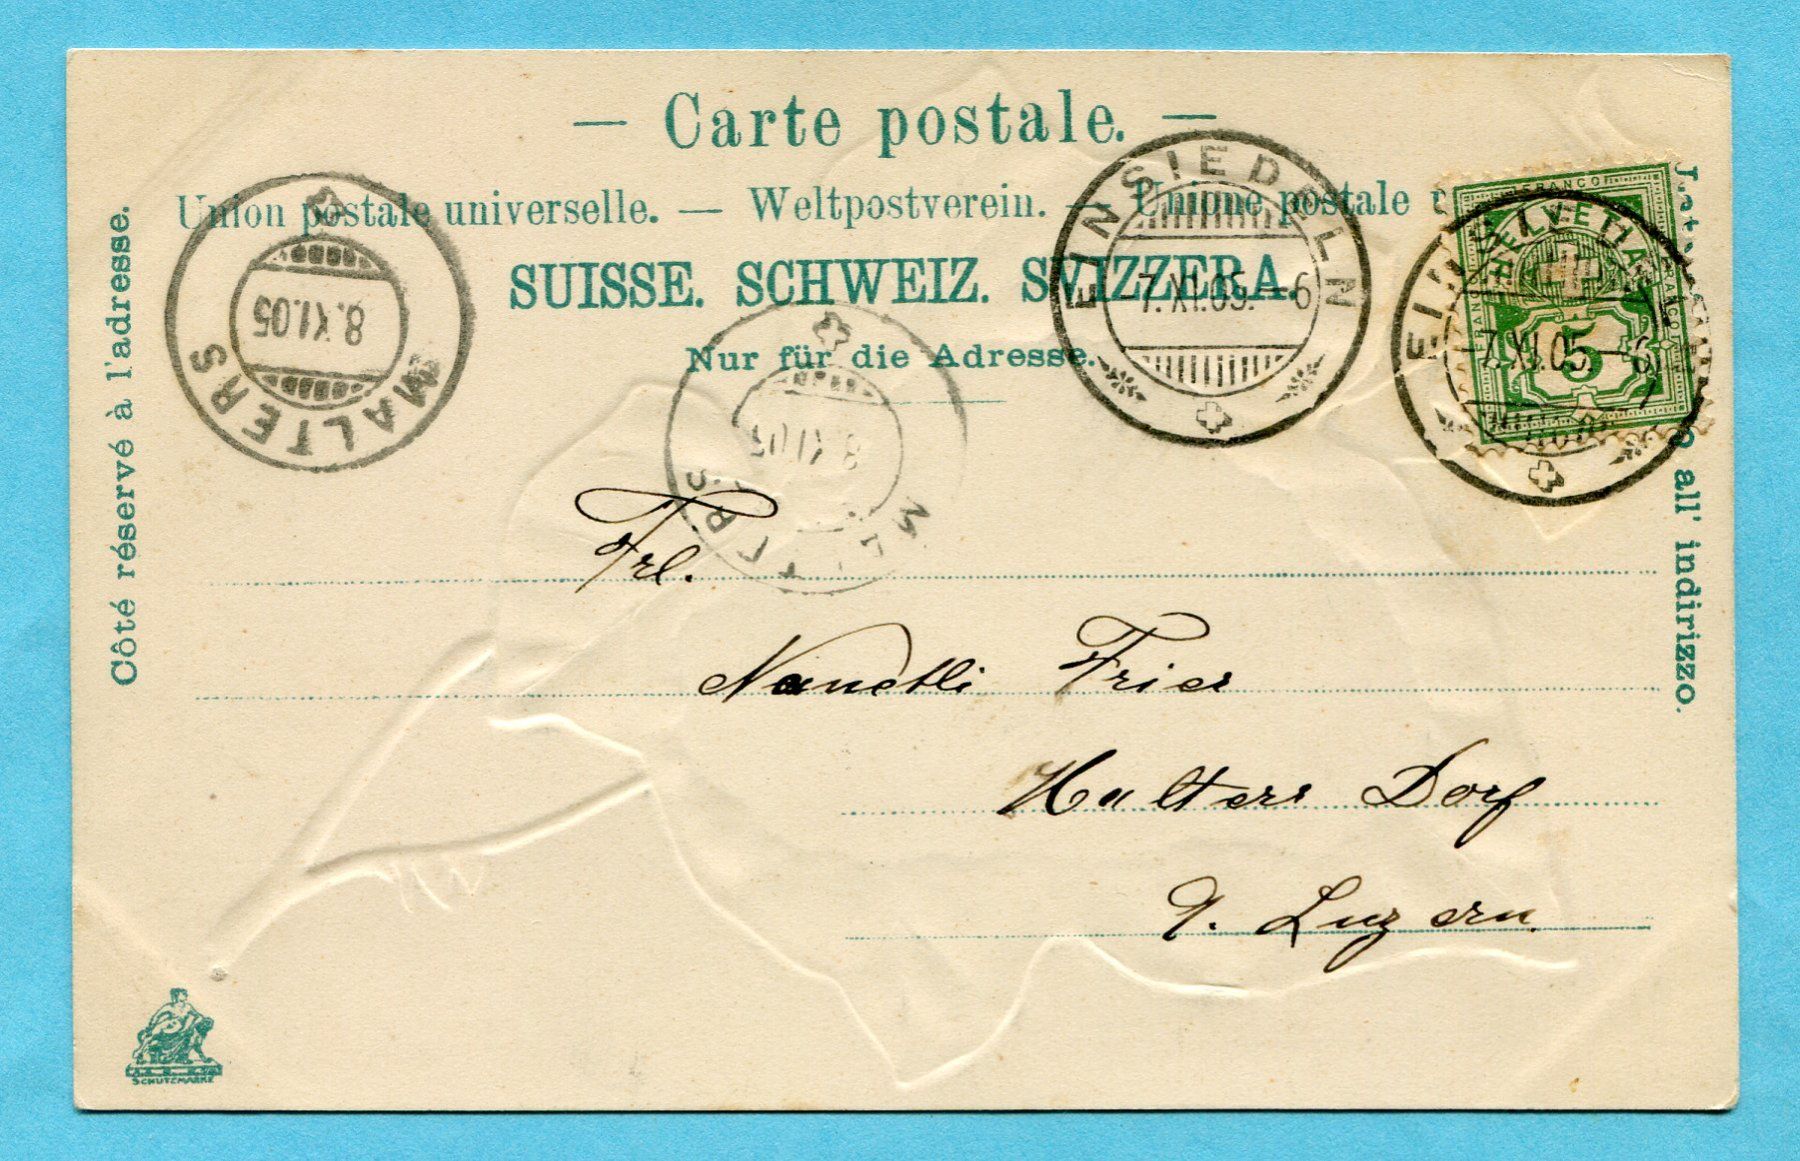 — Carte postale. —
Union postale universelle. — Weltpostverein. — Unione postale
SUISSE. SCHWEIZ. SVIZZERA.
Nur für die Adresse.
Côté réservé à l'adresse.
all' indirizzo.
MALTERS
8.XI.05
MALTERS
8.XI.05
EINSIEDELN
7.XI.05.–6
EINSIEDELN
7.XI.05.–6
FRANCO
HELVETIA
FRANCO
FRANCO
5
Frl.
Nanettli Frier
Malters Dorf
Luzern.
SCHUTZMARKE